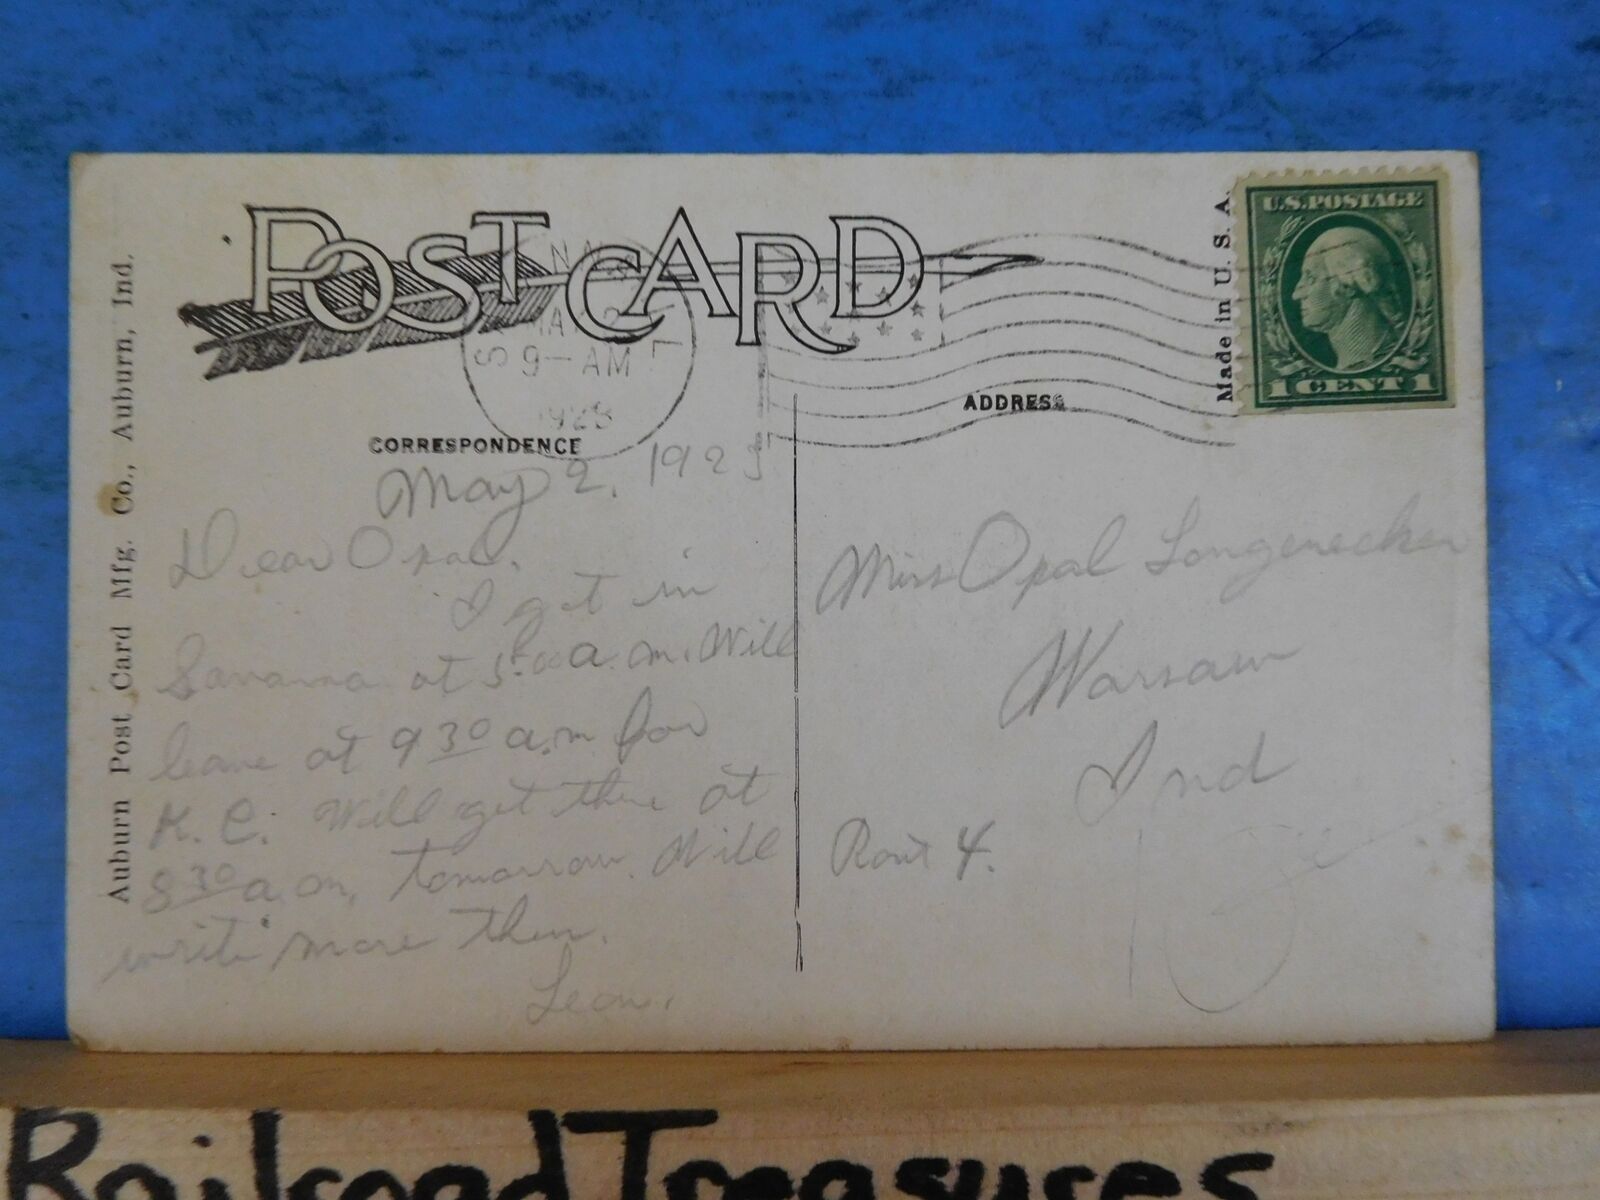 POST CARD
U.S. POSTAGE
1 CENT 1
Made in U. S. A.
Auburn Post Card Mfg. Co., Auburn, Ind.
9-AM
CORRESPONDENCE
ADDRESS
May 2, 1923
Dear Opal.
I got in
Savanna at 5:00 a.m. Will
leave at 9 30 a.m for
K. C. Will get there at
8 30 a.m. tomorrow. Will
write more then.
Leon.
Miss Opal Longenecker
Warsaw
Ind
Rout 4.
Railroad Treasures